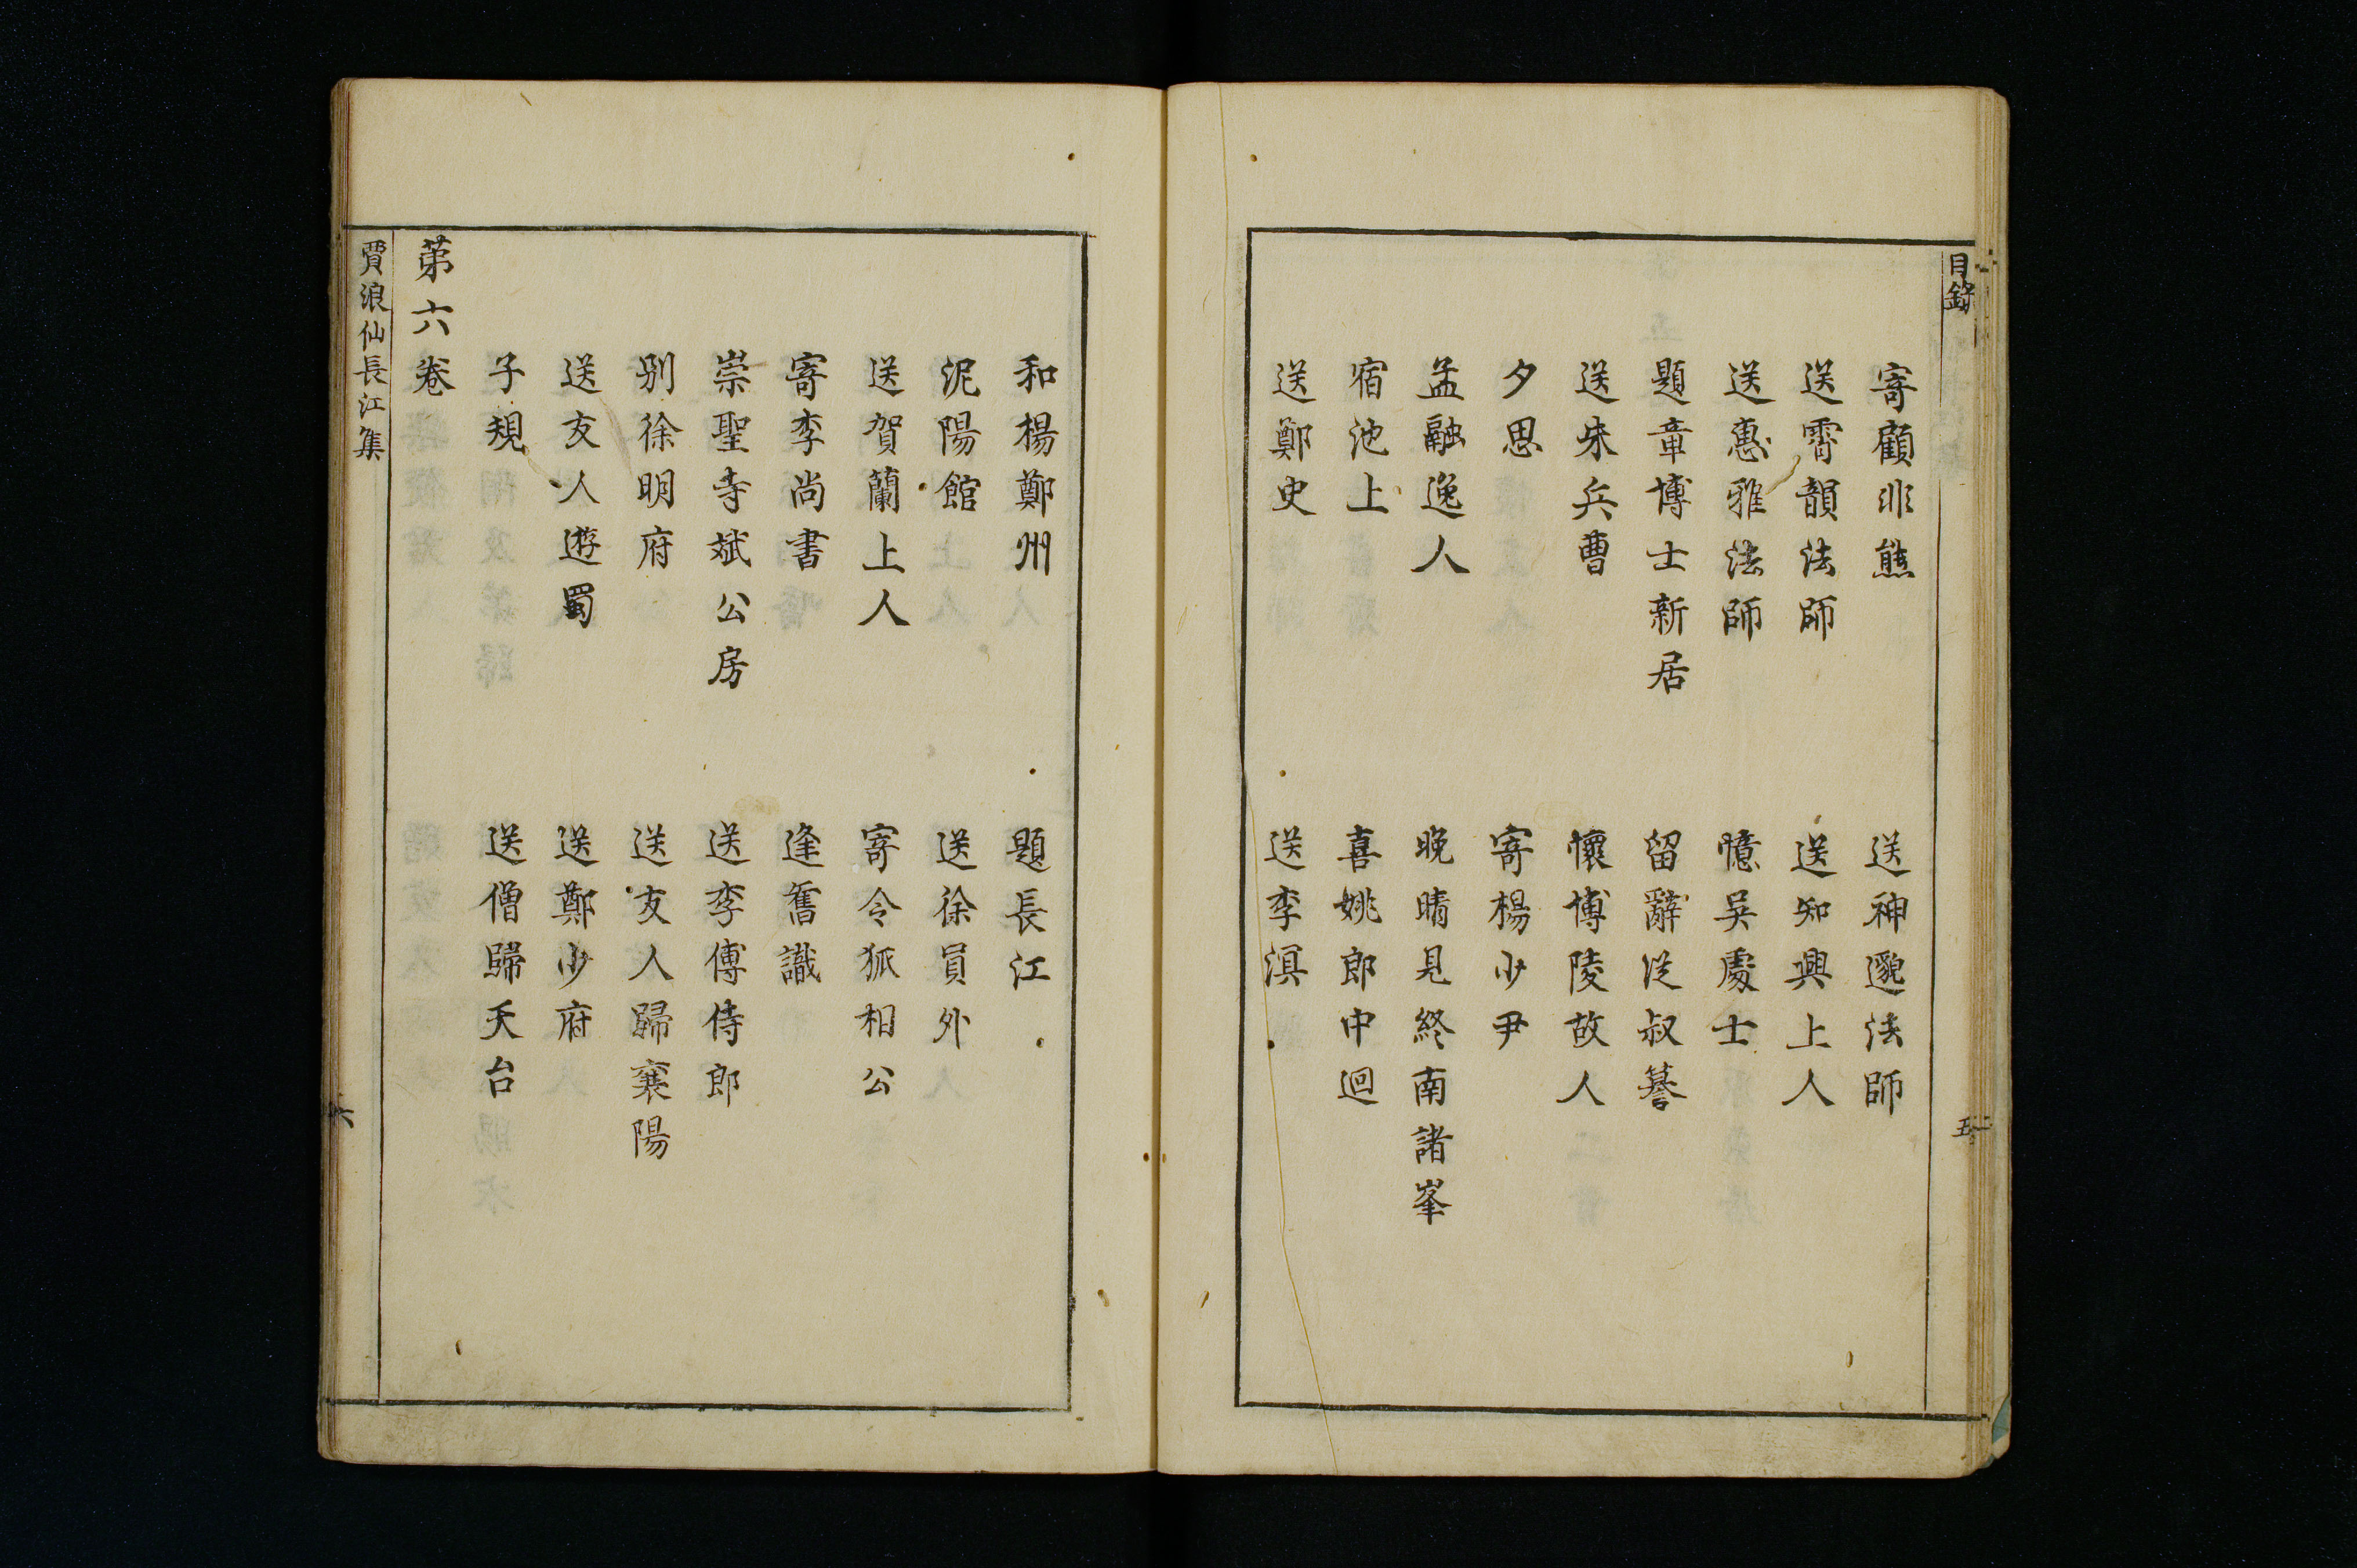 目錄
寄顧非熊
送神邈法師
送霄韻法師
送知興上人
送惠雅法師
憶吳處士
題章博士新居
留辭從叔謩
送朱兵曹
懷博陵故人
夕思
寄楊少尹
孟融逸人
晚晴見終南諸峯
宿池上
喜姚郎中迴
送鄭史
送李溟
五
和楊鄭州
題長江
泥陽館
送徐員外
送賀蘭上人
寄令狐相公
寄李尚書
逢舊識
崇聖寺斌公房
送李傅侍郎
別徐明府
送友人歸襄陽
送友人遊蜀
送鄭少府
子規
送僧歸天台
第六卷
賈浪仙長江集
六